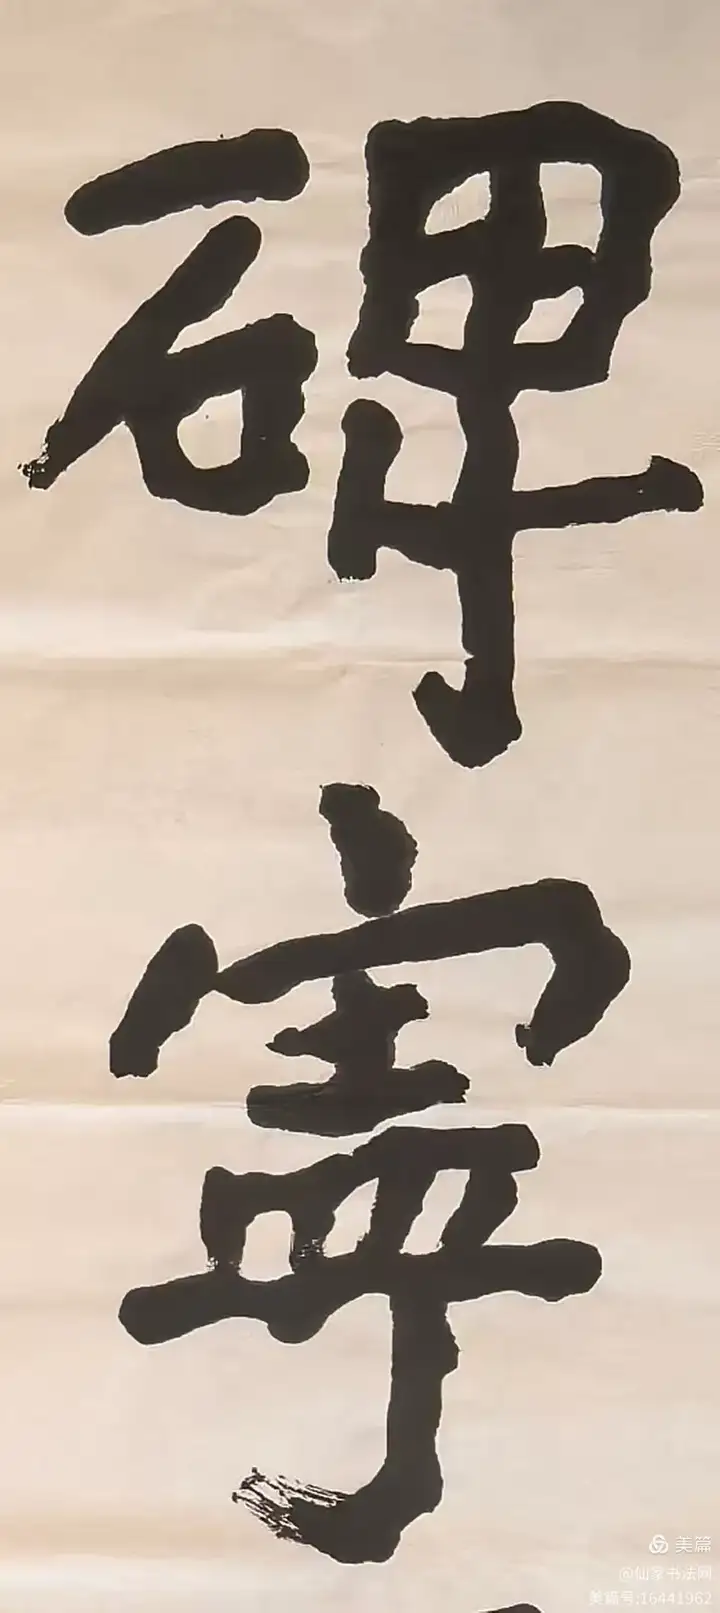 碑寧
美篇
书法网
美篇号:16441962